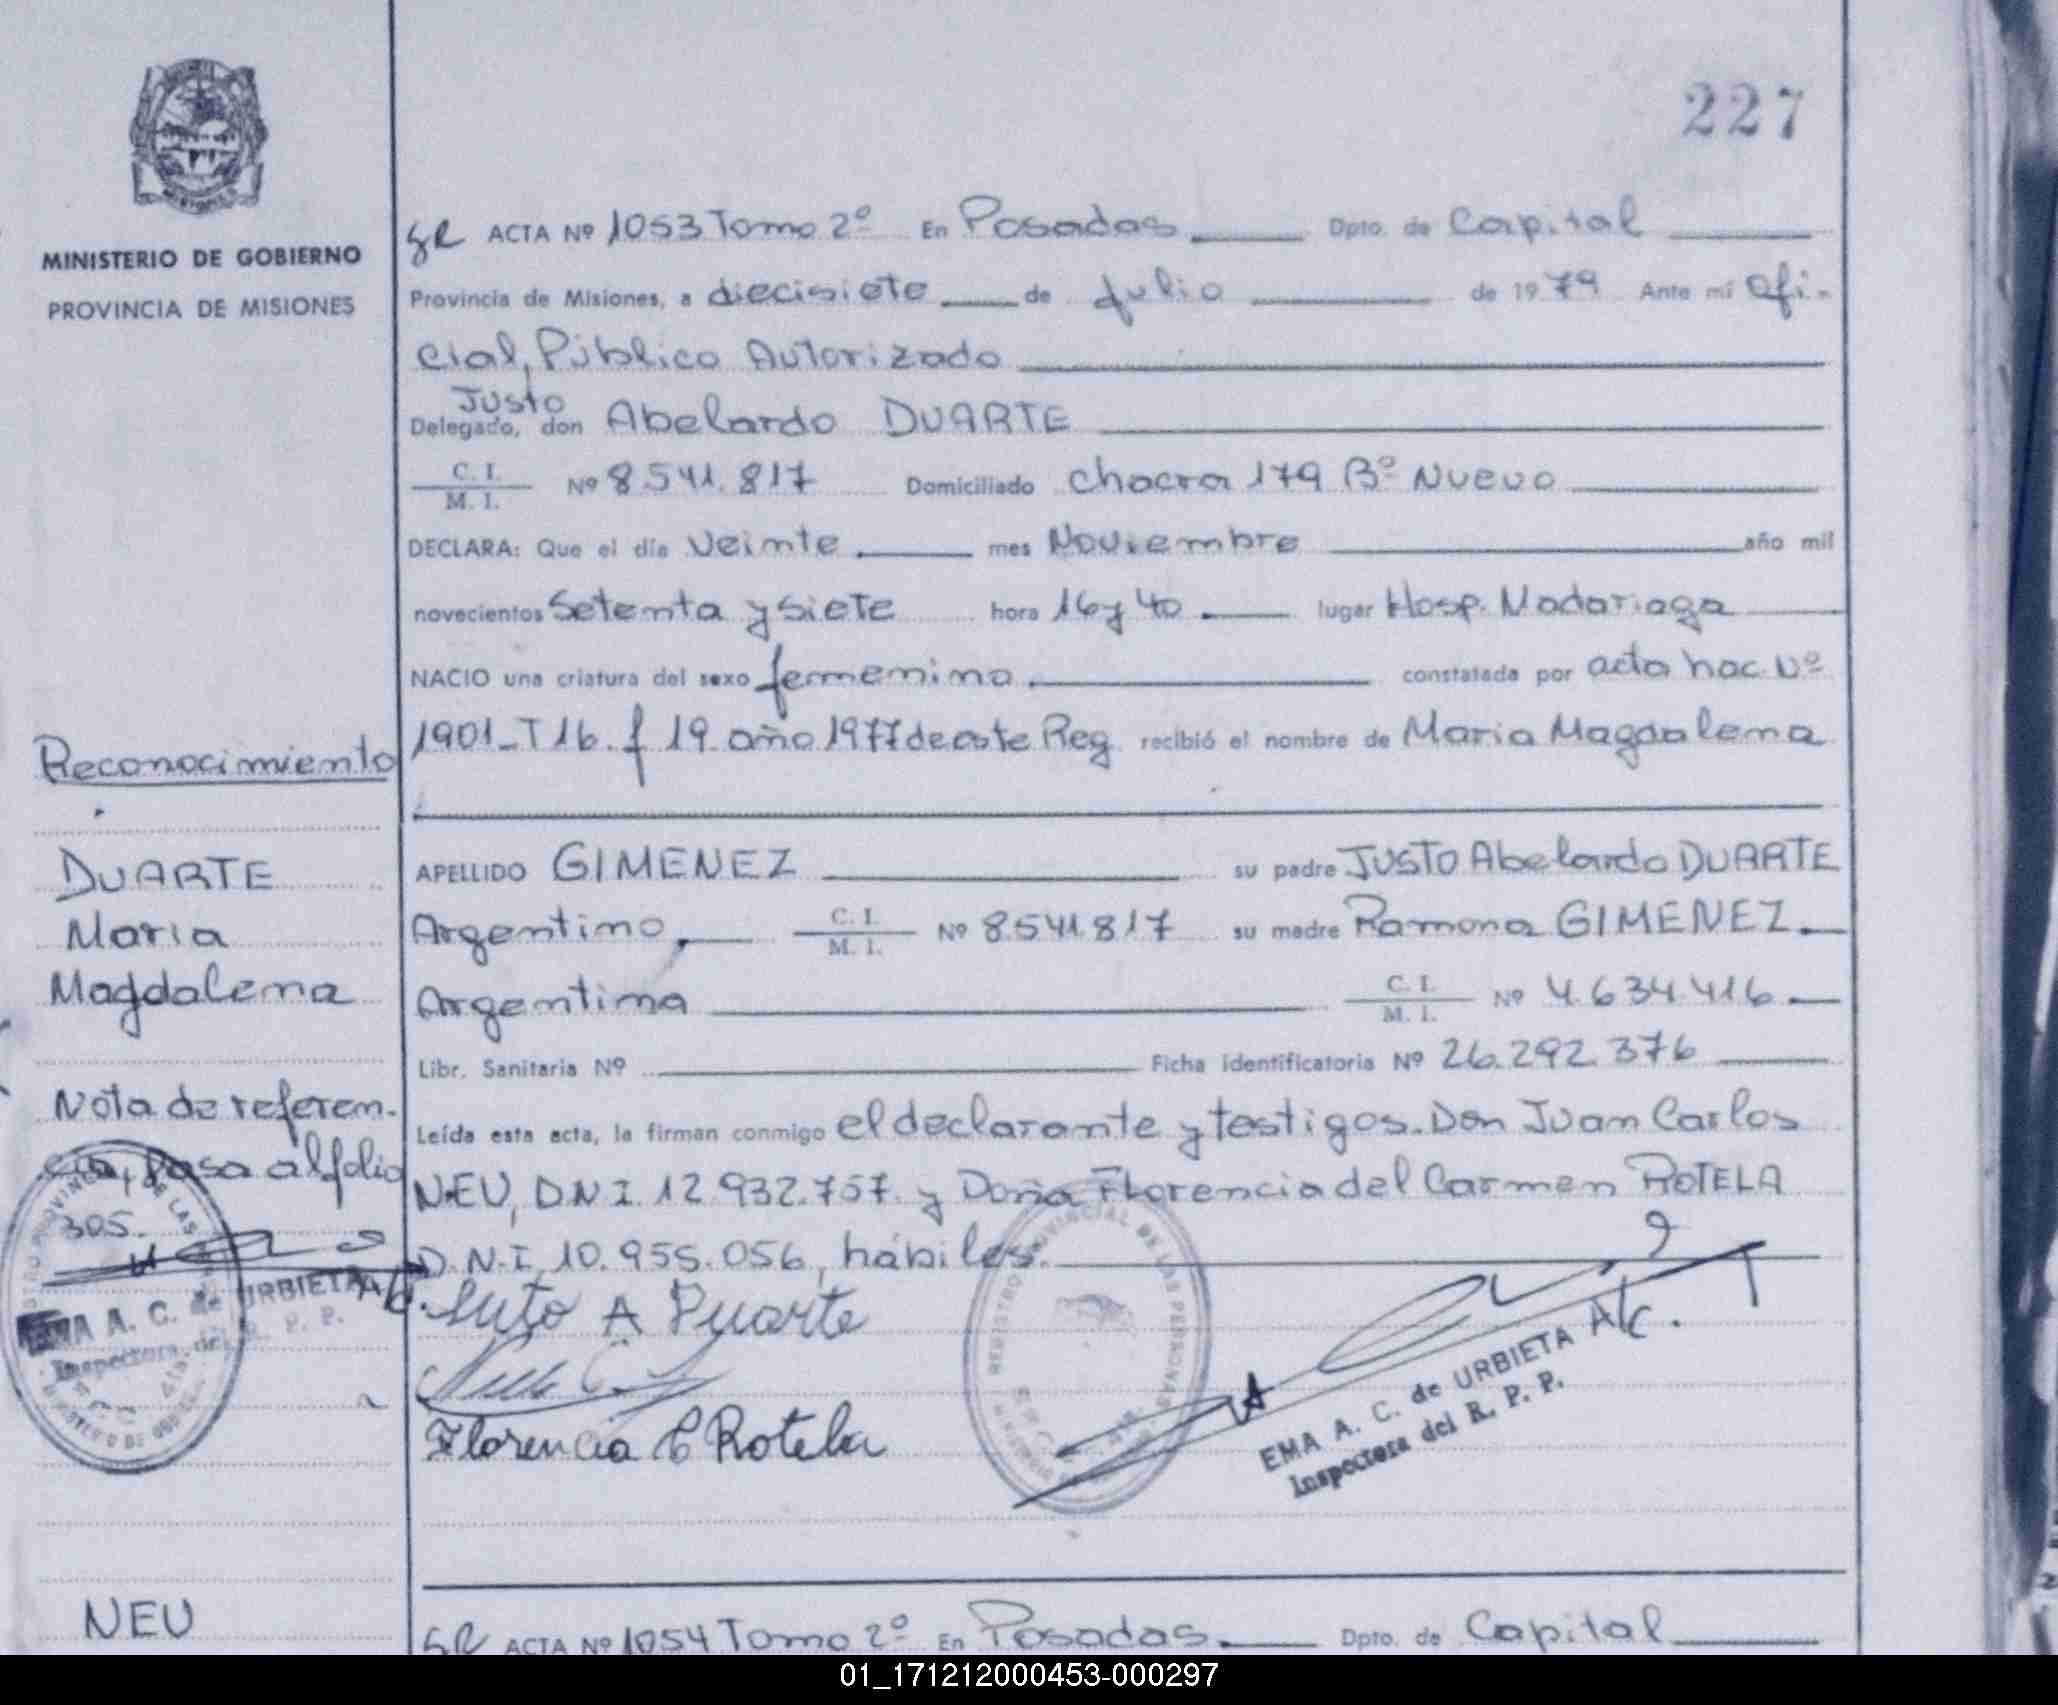 227
MINISTERIO DE GOBIERNO
PROVINCIA DE MISIONES
ACTA Nº 1053 Tomo 2º En Posadas Dpto. de Capital
Provincia de Misiones, a diecisiete de Julio de 1979 Ante mí Ofi-
cial, Público Autorizado
Justo
Delegado, don Abelardo DUARTE
C. I.
M. I. Nº 8.541.817 Domiciliado Chacra 179 Bº Nuevo
DECLARA: Que el día Veinte mes Noviembre año mil
novecientos Setenta y siete hora 16 y 40 lugar Hosp. Madariaga
NACIO una criatura del sexo femenino constatada por acta nac. Nº
1901-T16. f 19. año 1977 de este Reg. recibió el nombre de Maria Magdalena
APELLIDO GIMENEZ su padre JUSTO Abelardo DUARTE
Argentino, C. I. M. I. Nº 8.541.817 su madre Ramona GIMENEZ
Argentina C. I. M. I. Nº 4.634.416
Libr. Sanitaria Nº Ficha identificatoria Nº 26.292.376
Leída esta acta, la firman conmigo el declarante y testigos. Don Juan Carlos
NEU, D.N.I. 12.932.757. y Doña Florencia del Carmen ROTELA
D.N.I. 10.955.056, hábiles.
Justo A Duarte
Florencia C Rotela
REGISTRO PROVINCIAL DE LAS PERSONAS
EMA A. C. de URBIETA A/C.
Inspectora del R. P. P.
Reconocimiento
DUARTE
Maria
Magdalena
Nota de referen-
cia, pasa al folio
305.
EMA A. C. de URBIETA A/C.
Inspectora del R. P. P.
NEU
ACTA Nº 1054 Tomo 2º En Posadas Dpto. de Capital
01_171212000453-000297